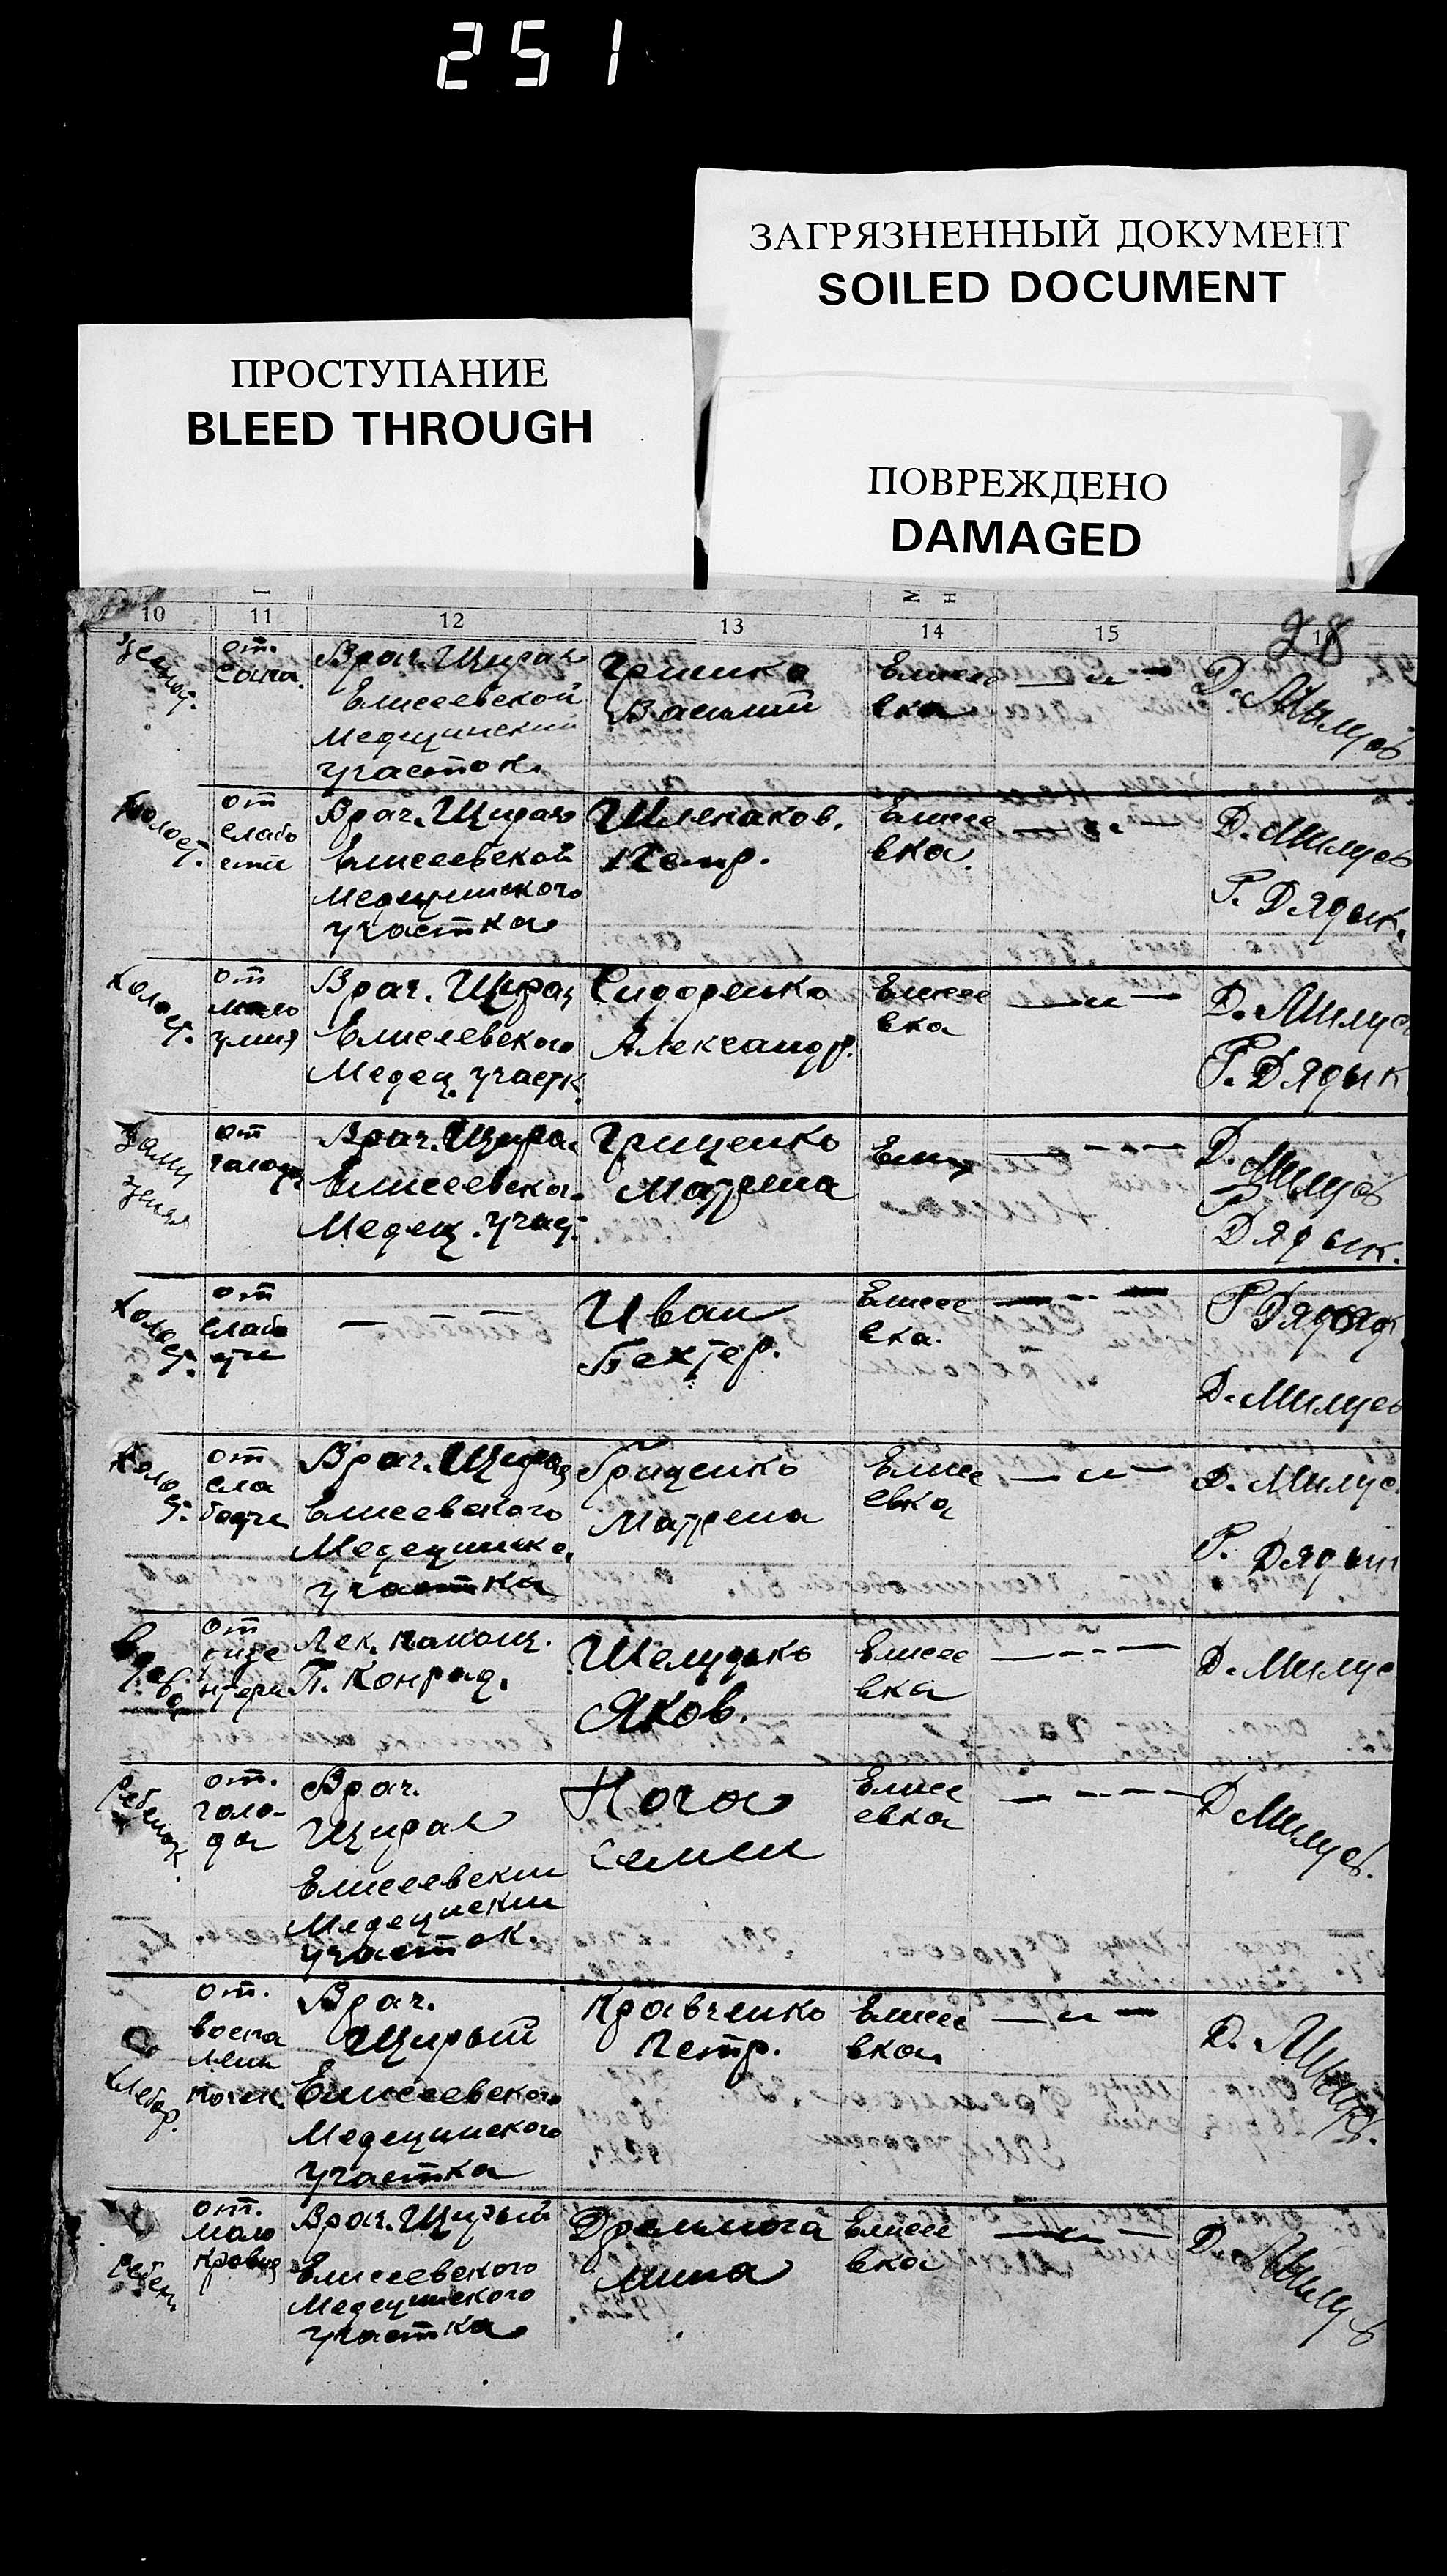 251
ЗАГРЯЗНЕННЫЙ ДОКУМЕНТ
SOILED DOCUMENT
ПРОСТУПАНИЕ
BLEED THROUGH
ПОВРЕЖДЕНО
DAMAGED
10 11 12 13 14 15
28
от.
Врач. Щирая
Елисеевской
Медецинский
участок.
Гришко
Василий
Елисее
вка
— и —
Д. Милусь
Холост.
от
слабо
сти
Врач. Щирая
Елисеевской
Медецинского
участка
Шлепаков.
Петр.
Елисее
вка
— и —
Д. Милусь
Г. Дядык.
Холост.
от
мало
умия
Врач. Щирая
Елисеевского
Медец. участк.
Сидоренко
Александр.
Елисее
вка
— и —
Д. Милусь
Г. Дядык
Заму
жняя
от
голода
Врач. Щира.
Елисеевског.
Медец. участ.
Гриценко
Матрена
Елис
— - - —
Д. Милусь
Дядык.
Холост.
от
слабо
сти
— — —
Иван
Бехтер.
Елисее
вка.
— - - —
Г. Дядык
Д. Милусь
Холост.
от
сла
бости
Врач. Щирая
Елисеевского
Медецинско.
участка
Гриценко
Матрена
Елисе
евка
— и —
Д. Милус
Г. Дядык
Вдова
от
дизе
нтери
Лек. помощ.
П. Конрад.
Шелудько
Яков.
Елисее
вка
— - - —
Д. Милус
Ребенок.
от.
голо-
да
Врач.
Щирая
Елисеевский
Медецинский
участок.
Коча
Семен
Елисе
евка
— - - —
Д Милусь.
Хлебор.
от.
воспа
лени
почек.
Врач.
Щирый
Елисеевского
Медецинского
участка
Кравченко
Петр.
Елисее
вка.
— и —
Д. Милусь.
Ребен.
от.
мало
кровия
Врач. Щирый
Елисеевского
Медецинского
участка
Дремлюга
Мина
Елисее
вка
— и —
Д. Милусь